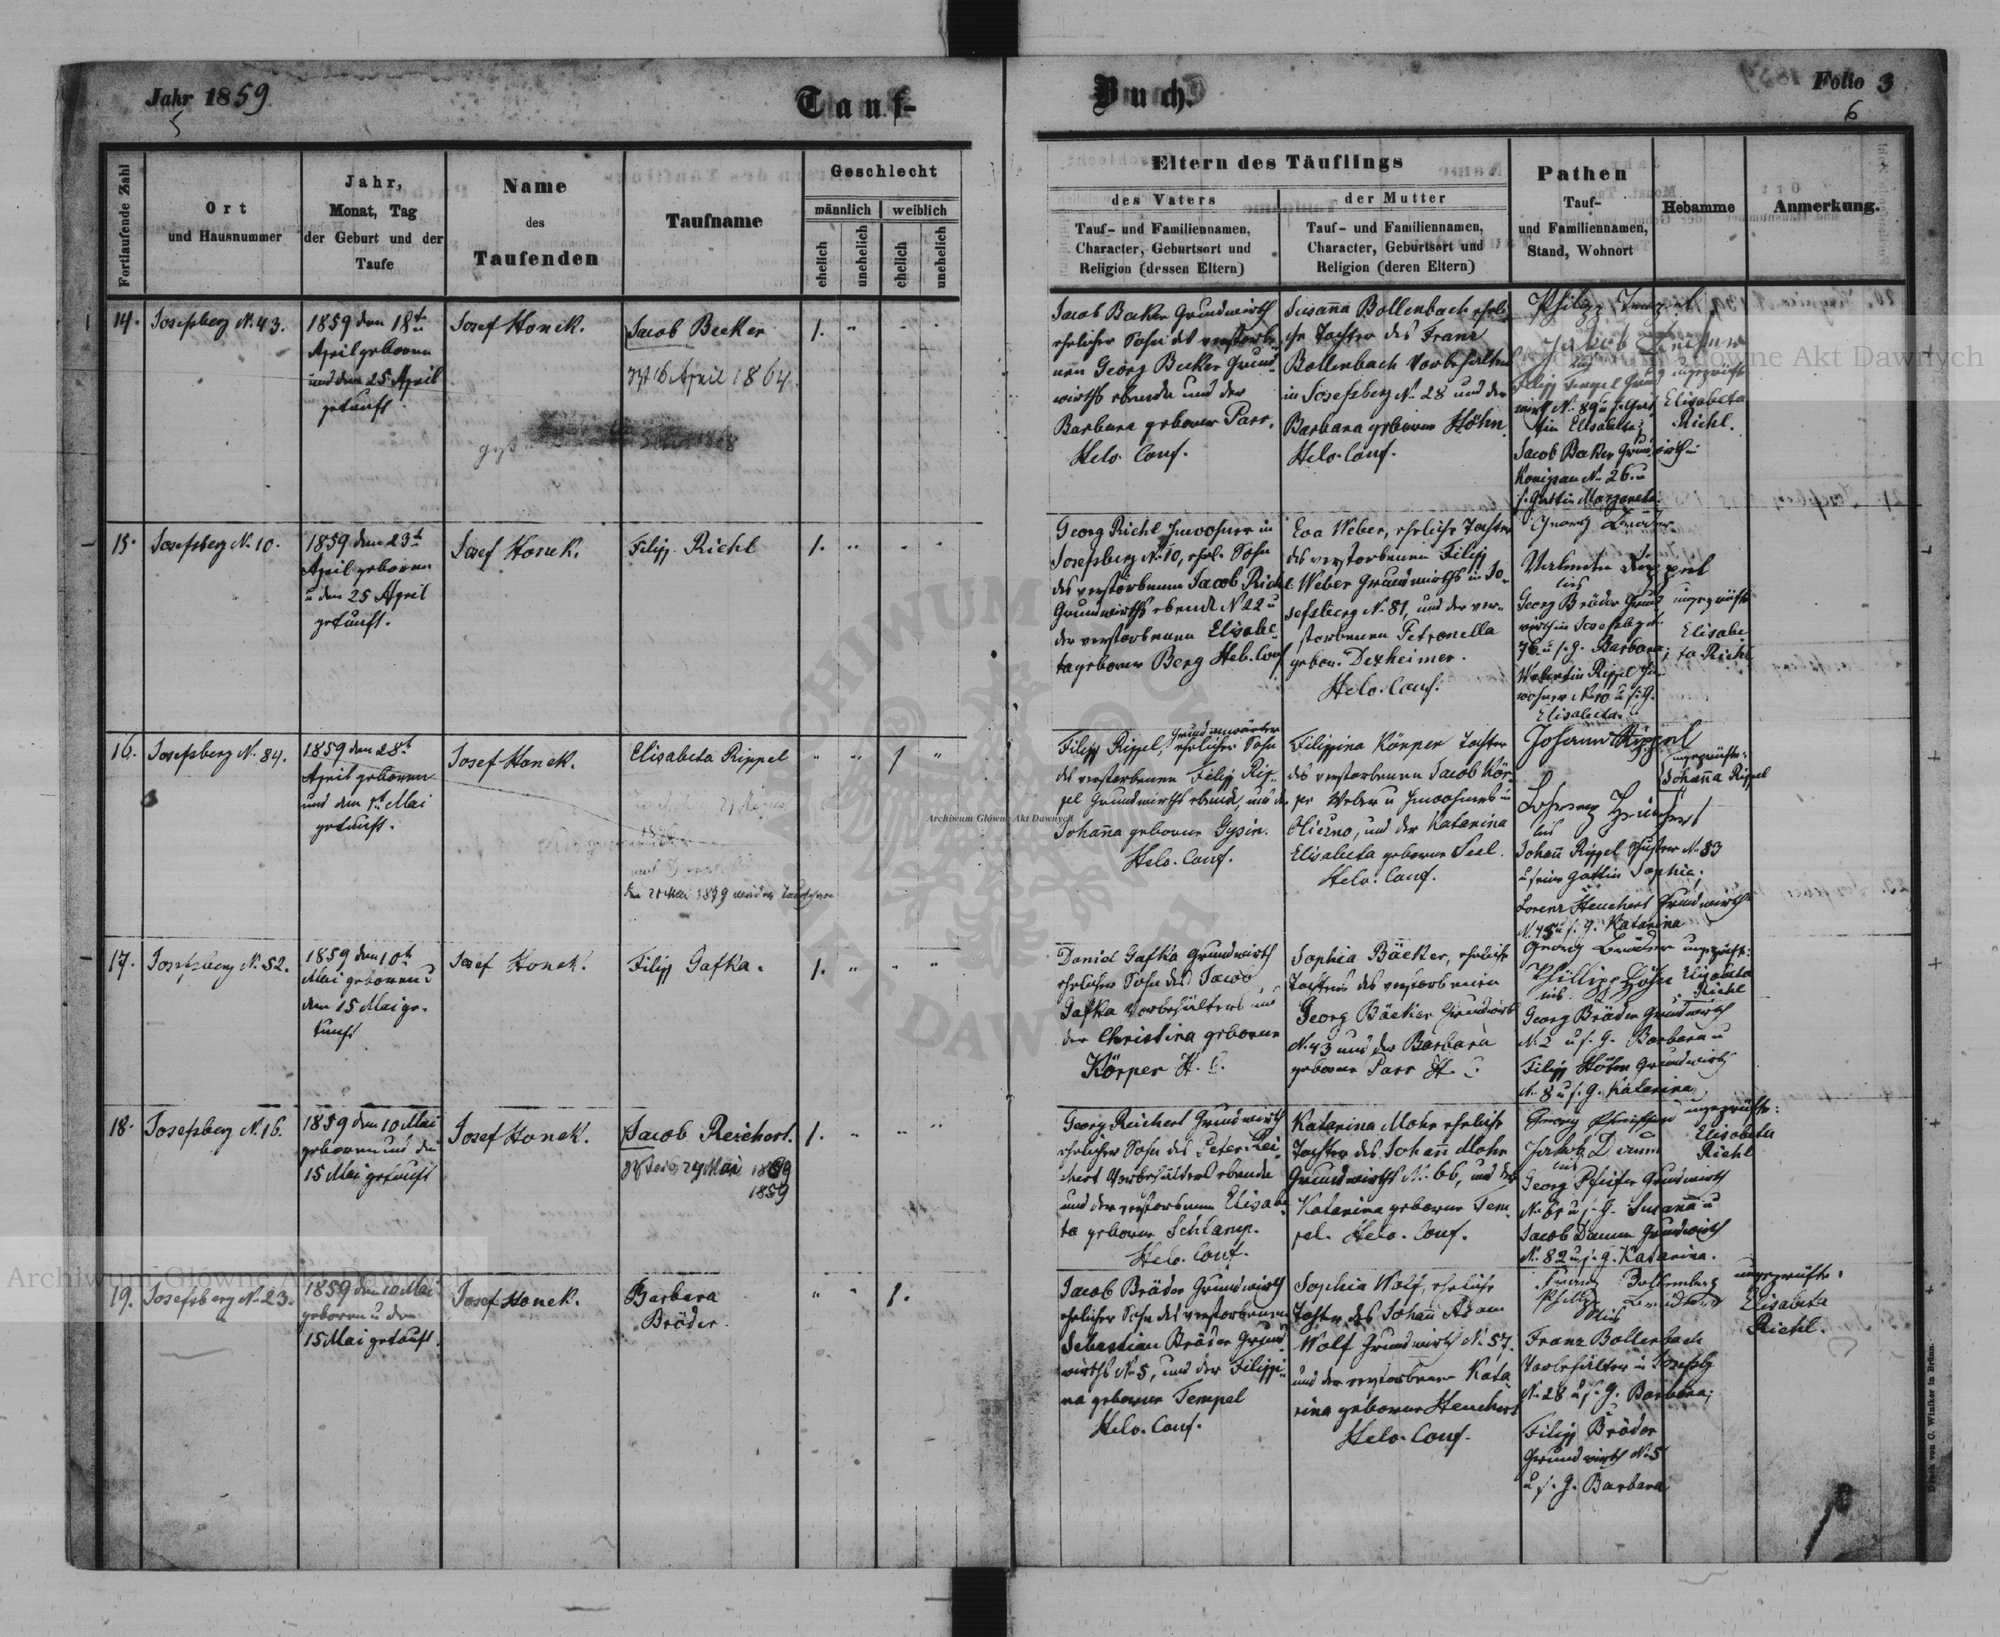 Jahr 1859
5
Tauf-
Buch.
Folio 3
6
Fortlaufende Zahl
Ort
und Hausnummer
Jahr,
Monat, Tag
der Geburt und der
Taufe
Name
des
Taufenden
Taufname
Geschlecht
männlich
weiblich
ehelich
unehelich
ehelich
unehelich
Eltern des Täuflings
des Vaters
Tauf- und Familiennamen,
Character, Geburtsort und
Religion (dessen Eltern)
der Mutter
Tauf- und Familiennamen,
Character, Geburtsort und
Religion (deren Eltern)
Pathen
Tauf-
und Familiennamen,
Stand, Wohnort
Hebamme
Anmerkung.
14.
Josefsberg N. 43.
1859 den 18t
April geboren
und den 25 April
getauft.
Josef Honek.
Jacob Becker
16 April 1864
1.
Jacob Becker Grundwirth
ehelicher Sohn des verstorbe
nen Georg Becker Grund
wirths ebenda und der
Barbara geborene Parr.
Helv. Conf.
Susanna Bollenbach eheli
che Tochter des Franz
Bollenbach Vorbehälter
in Josefsberg N. 28 und der
Barbara geborene Höhn
Helv. Conf.
Filipp Tempel Grund
wirth N. 89 u s. Gat
tin Elisabeta;
Jacob Becker Grundwirth in
Königsau N. 26. u
s. Gattin Margareta.
ungeprüfte
Elisabeta
Richl.
15.
Josefsberg N. 10.
1859 den 23t
April geboren
u den 25 April
getauft.
Josef Honek.
Filipp Richl
1.
Georg Richl Inwohner in
Josefsberg N. 10, ehel. Sohn
des verstorbenen Jacob Richl
Grundwirths ebenda N. 22 u
der verstorbenen Elisabe
ta geborene Berg Helv. Conf
Eva Weber, eheliche Tochter
des verstorbenen Filipp
Weber Grundwirths in Jo-
sefsberg N. 81, und der ver-
storbenen Petronella
gebor. Dexheimer.
Helv. Conf.
Georg Bräder
Valentin Rippel
Georg Bräder Grund
wirth in Josefsberg
76 u s. g. Barbara;
Valentin Rippel In-
wohner N. 10 u s. G.
Elisabeta.
ungeprüfte
Elisabe
ta Richl
16.
Josefsberg N. 84.
1859 den 28t
April geboren
und den 1t Mai
getauft.
Josef Honek.
Elisabeta Rippel
1
Filipp Rippel, ehelicher Sohn
des verstorbenen Filipp Rip-
pel Grundwirths ebenda, und der
Johanna geborene Gysin.
Helv. Conf.
Filippina Körper Tochter
des verstorbenen Jacob Kör-
per Weber u Inwohners in
Ohiczno, und der Katarina
Elisabeta geborene Seel.
Helv. Conf.
Johann Rippel
Johann Rippel Schuster N. 83
u seine Gattin Sophia;
Lorenz Heuchert Grundwirth
N. 45 u s. g. Katarina
ungeprüfte:
Johanna Rippel
17.
Josefsberg N. 52.
1859 den 10t
Mai geboren u
den 15 Mai ge-
tauft
Josef Honek.
Filipp Gafka.
1.
Daniel Gafka Grundwirth
ehelicher Sohn des Jacob
Gafka Vorbehälters und
der Christina geborene
Körper H. C.
Sophia Bäcker, eheliche
Tochter des verstorbenen
Georg Bäcker Grundwirth
N. 43 und der Barbara
geborene Parr H. C.
Georg Bräder
Phillipp Höhn
Georg Bräder Grundwirth
N. 2 u s. g. Barbara u
Filipp Höhn Grundwirth
N. 8 u s. g. Katarina
ungeprüfte:
Elisabeta
Richl
18.
Josefsberg N. 16.
1859 den 10 Mai
geboren und den
15 Mai getauft
Josef Honek.
Jacob Reichert.
24 Mai 1859
1859
1.
Georg Reichert Grundwirth
ehelicher Sohn des Peter Rei-
chert Vorbehälters ebenda
und der verstorbenen Elisabe
ta geborene Schlamp.
Helv. Conf.
Katarina Mohr eheliche
Tochter des Johann Mohr
Grundwirths N. 66, und der
Katarina geborene Tem-
pel. Helv. Conf.
Jakob Damm
Georg Pfeifer Grundwirth
N. 65 u s. g. Susanna u
Jacob Damm Grundwirth
N. 82 u s. g. Katarina.
ungeprüfte:
Elisabeta
Richl
19.
Josefsberg N. 23.
1859 den 10 Mai
geboren u den
15 Mai getauft.
Josef Honek.
Barbara
Bräder.
1.
Jacob Bräder Grundwirth
ehelicher Sohn des verstorbenen
Sebastian Bräder Grund
wirths N. 5, und der Filippi-
na geborene Tempel
Helv. Conf.
Sophia Wolf, eheliche
Tochter des Johann Adam
Wolf Grundwirth N. 57.
und der verstorbenen Kata
rina geborene Heuchert
Helv. Conf.
Franz Bollenbach
Vorbehälter in Josefsbg
N. 28 u s. g. Barbara;
Filipp Bräder
Grundwirth N. 5
u s. g. Barbara
ungeprüfte:
Elisabeta
Richl.
Druck von C. Winiker in Brünn.
Archiwum Główne Akt Dawnych
Archiwum Główne Akt Dawnych
Archiwum Główne Akt Dawnych
ARCHIWUM GŁÓWNE AKT DAWNYCH